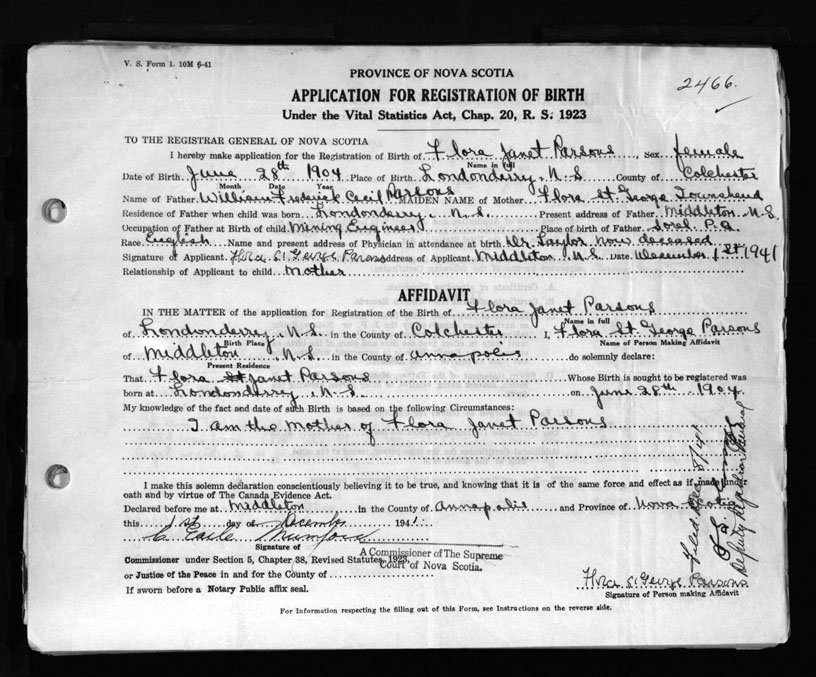 V. S. Form 1. 10M 6-41
2466.
PROVINCE OF NOVA SCOTIA
APPLICATION FOR REGISTRATION OF BIRTH
Under the Vital Statistics Act, Chap. 20, R. S. 1923
TO THE REGISTRAR GENERAL OF NOVA SCOTIA
I hereby make application for the Registration of Birth of Flora Janet Parsons, Sex female
Name in full
Date of Birth June 28th 1904 Place of Birth Londonderry, N.S. County of Colchester
Month Date Year
Name of Father William Frederick Cecil Parsons MAIDEN NAME of Mother Flora St George Townshend
Residence of Father when child was born Londonderry, N.S. Present address of Father Middleton N.S.
Occupation of Father at Birth of child Mining Engineer Place of birth of Father Sorel P.Q
Race English Name and present address of Physician in attendance at birth Dr. Taylor now deceased
Signature of Applicant Flora St George Parsons Address of Applicant Middleton, N.S. Date December 1st 1941
Relationship of Applicant to child Mother
AFFIDAVIT
IN THE MATTER of the application for Registration of the Birth of Flora Janet Parsons
Name in full
of Londonderry, N.S. in the County of Colchester I, Flora St George Parsons
Birth Place Name of Person Making Affidavit
of Middleton N.S. in the County of Annapolis do solemnly declare:
Present Residence
That Flora St Janet Parsons Whose Birth is sought to be registered was
born at Londonderry, N.S. on June 28th 1904
My knowledge of the fact and date of such Birth is based on the following Circumstances:
I am the mother of Flora Janet Parsons
I make this solemn declaration conscientiously believing it to be true, and knowing that it is of the same force and effect as if made under
oath and by virtue of The Canada Evidence Act.
Declared before me at Middleton in the County of Annapolis and Province of Nova Scotia
this 1st day of December 1941
C Earle Mumford
Signature of
A Commissioner of The Supreme
Court of Nova Scotia.
Commissioner under Section 5, Chapter 38, Revised Statutes, 1923
or Justice of the Peace in and for the County of
If sworn before a Notary Public affix seal.
Flora St George Parsons
Signature of Person making Affidavit
For Information respecting the filling out of this Form, see Instructions on the reverse side.
Filed Dec 8/41
Deputy Registrar General